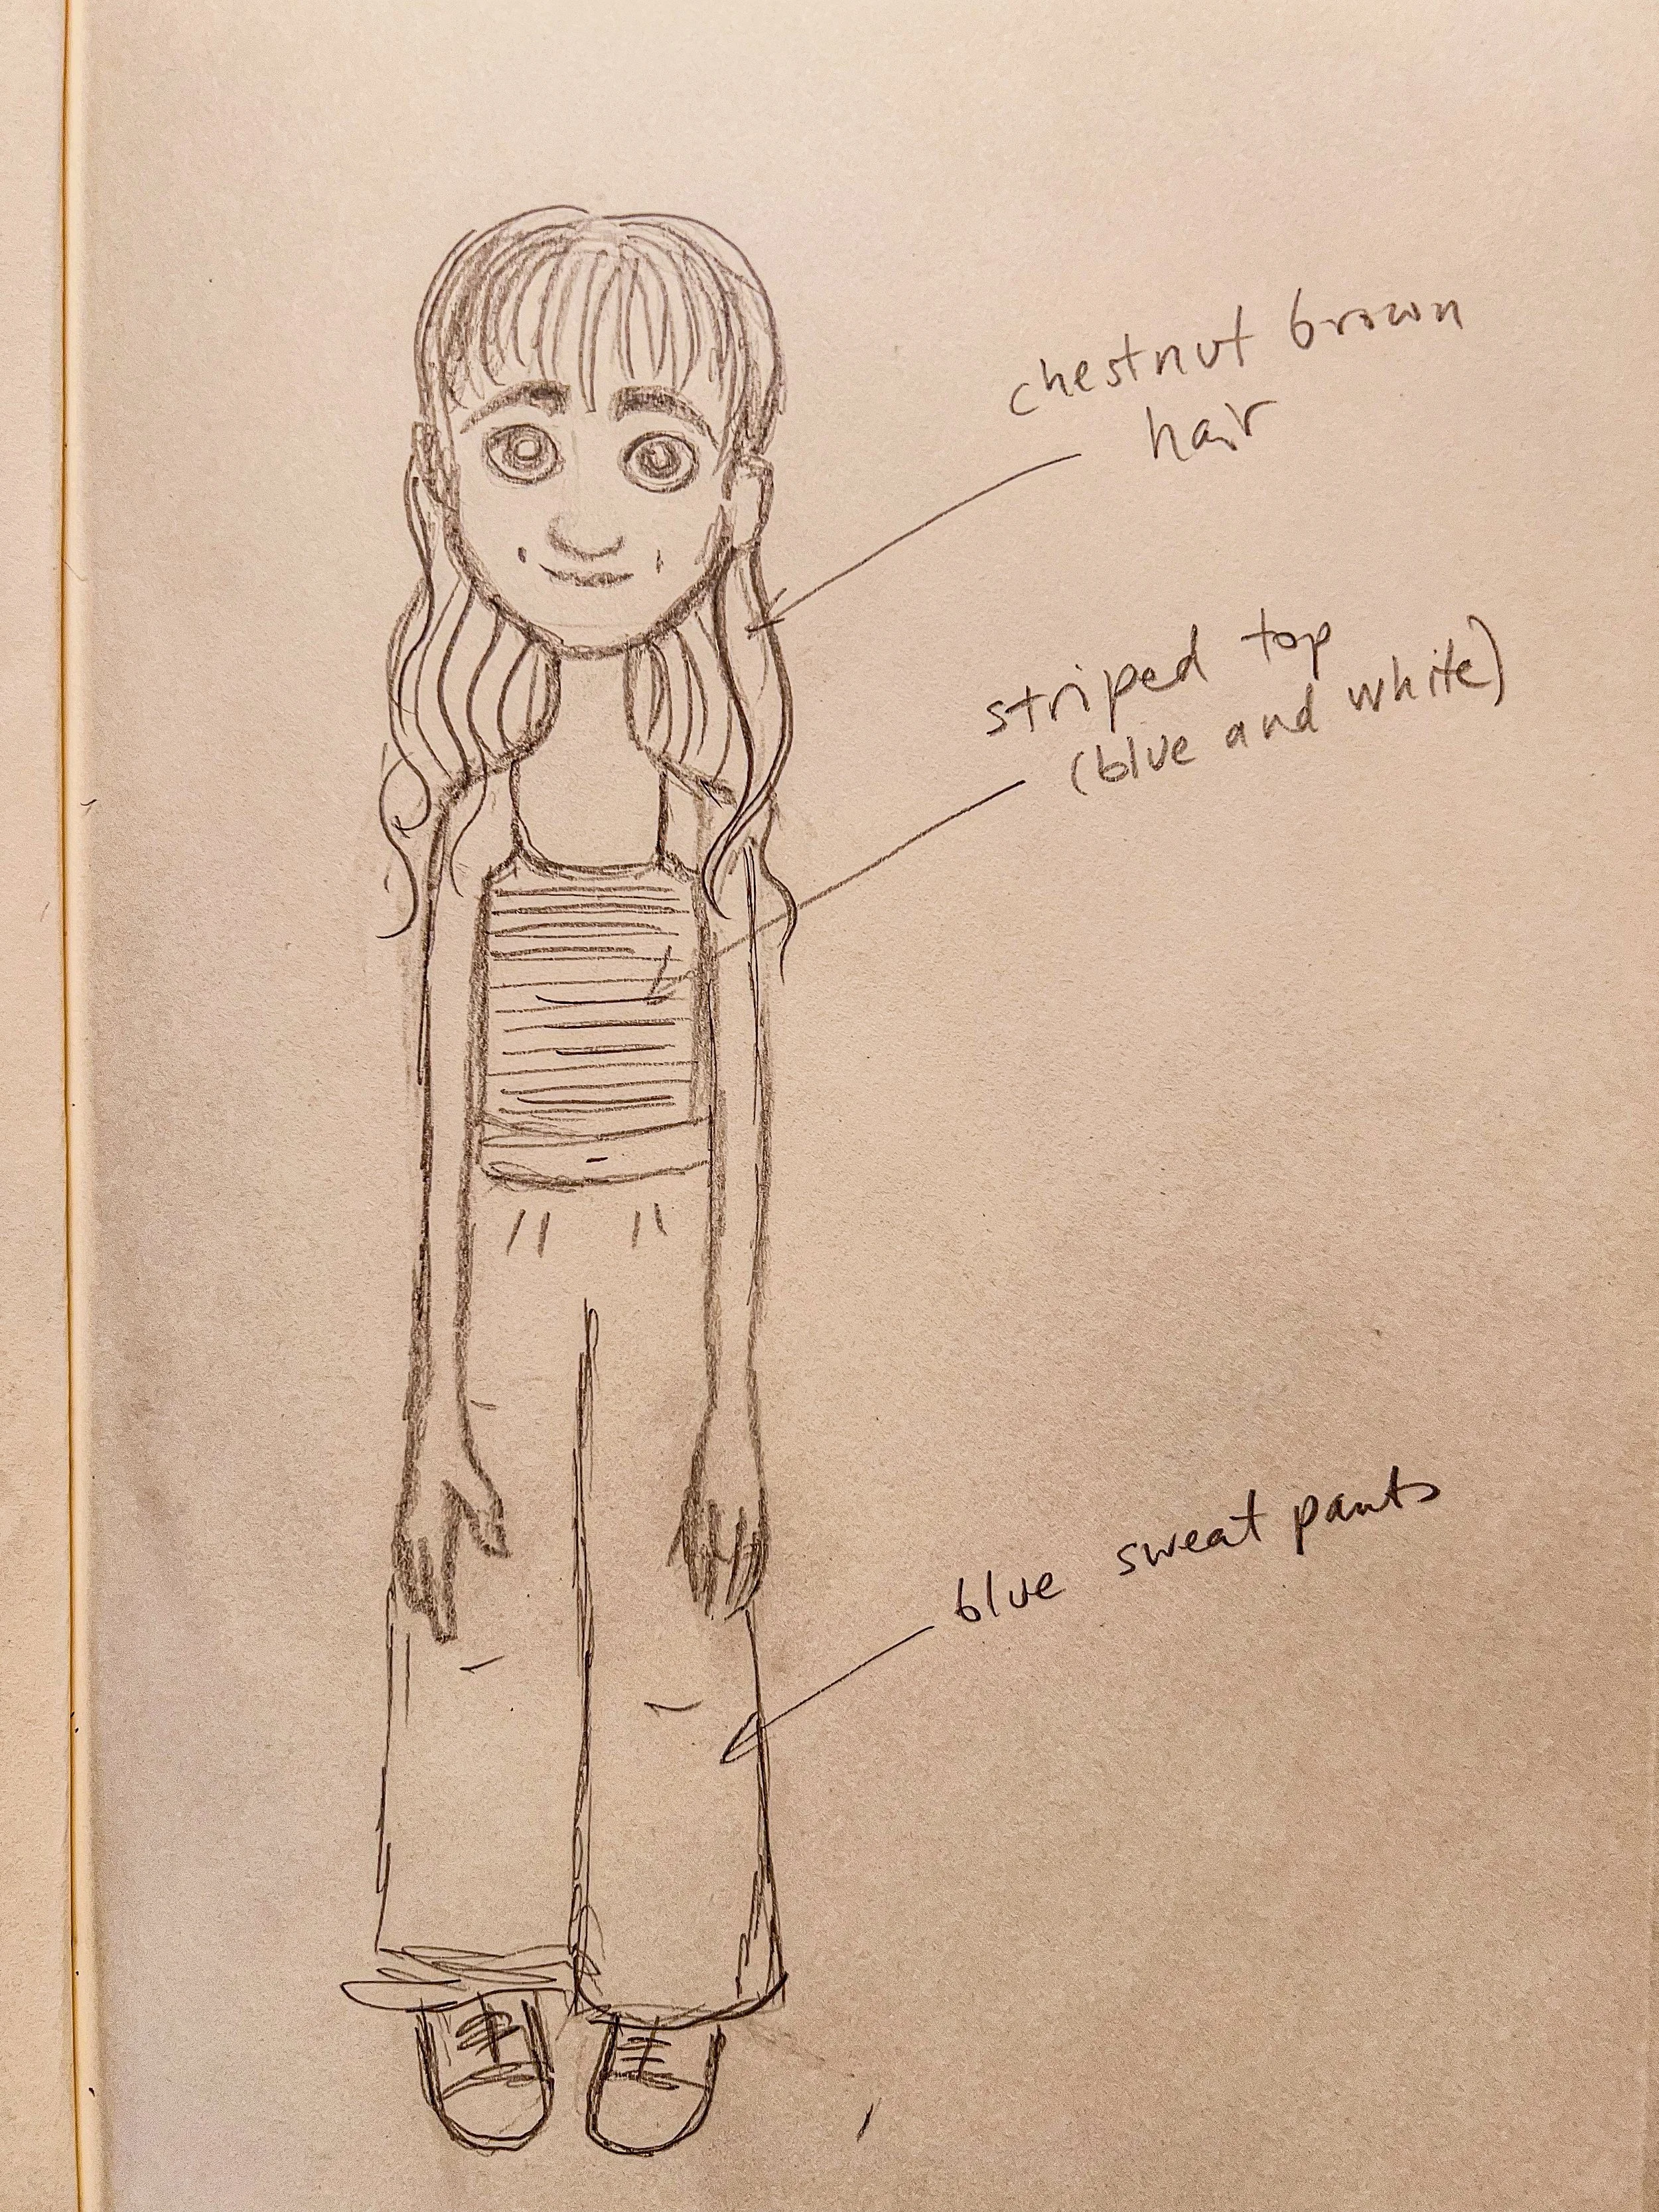 chestnut brown
hair
striped top
(blue and white)
blue sweat pants